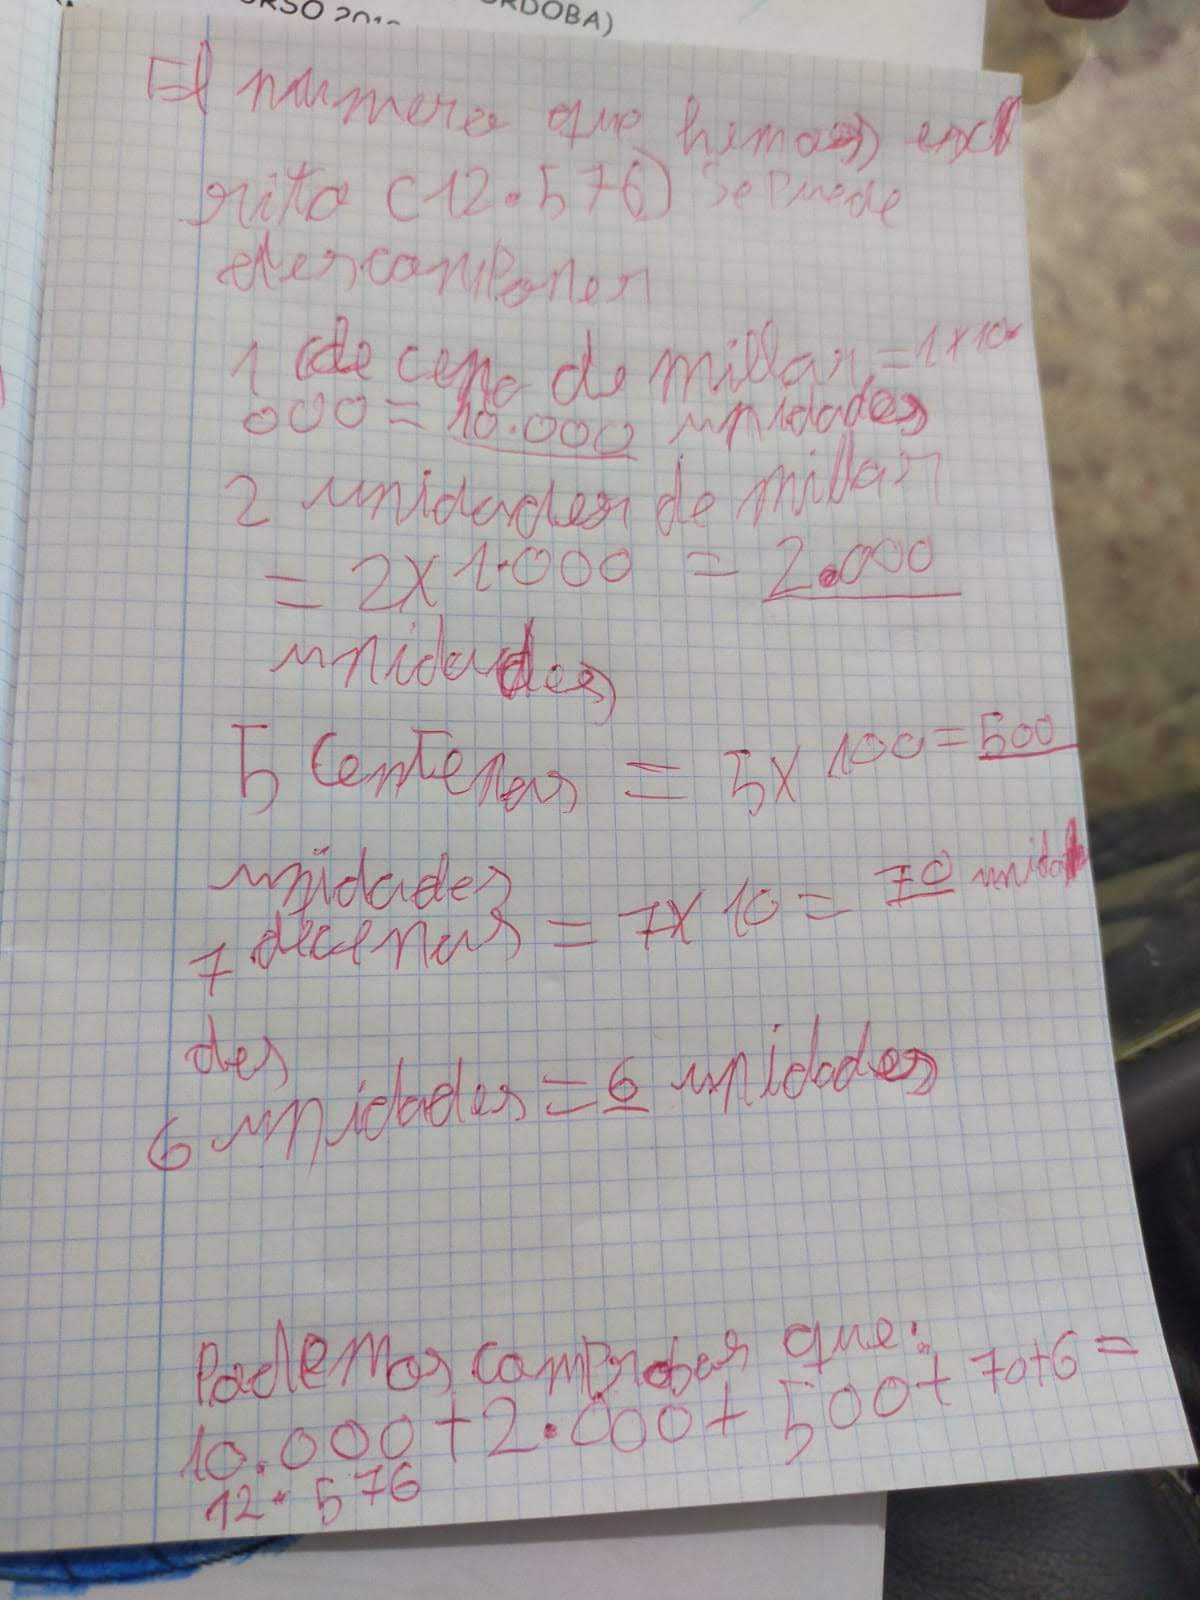 CURSO 201
CÓRDOBA)
El numero que hemos esc
rito (12.576) se puede
descomponer
1 decena de millar = 1x10.
000 = 10.000 unidades
2 unidades de millar
= 2x1.000 = 2.000
unidades
5 Centenas = 5x 100 = 500
unidades
7 decenas = 7x 10 = 70 unida
des
6 unidades = 6 unidades
Podemos comprobar que:
10.000 + 2.000 + 500 + 70+6 =
12.576